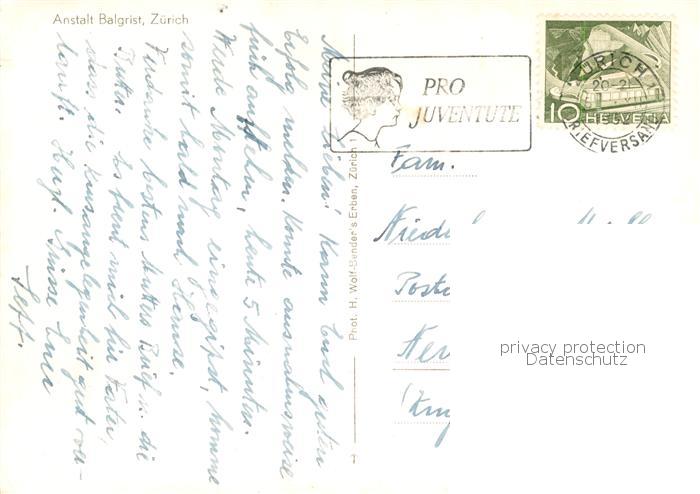 Anstalt Balgrist, Zürich
Meine Lieben! Kann Euch guten
Erfolg melden. Konnte ausnahmsweise
früh aufstehn, heute 5 Minuten.
Werde Montag eingegipst, komme
somit bald nach Hause.
Verdanke bestens Mutters Brief u. die
Butter. Es freut mich für Vater,
dass die Kursangelegenheit gut ver-
lauft. Herzl. Grüsse Euer
Seff.
Phot. H. Wolf-Bender's Erben, Zürich 1
PRO
JUVENTUTE
ZÜRICH
BRIEFVERSAND
10 HELVETIA
Fam.
privacy protection
Datenschutz